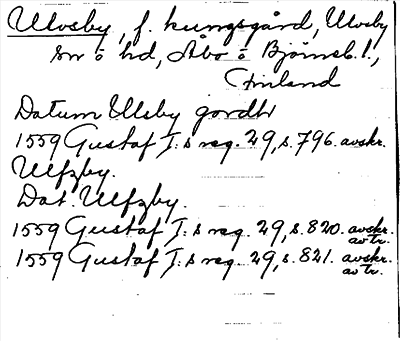 Ulvsby, f. kungsgård, Ulvsby
sn o hd, Åbo o Björneb. l.,
Finland
Datum Ulsby gordh
1559 Gustaf I:s reg. 29, s. 796. avskr.
Ulfzby.
Dat. Ulfzby.
1559 Gustaf I:s reg. 29, s. 820. avskr.
av tr.
1559 Gustaf I:s reg. 29, s. 821. avskr.
av tr.